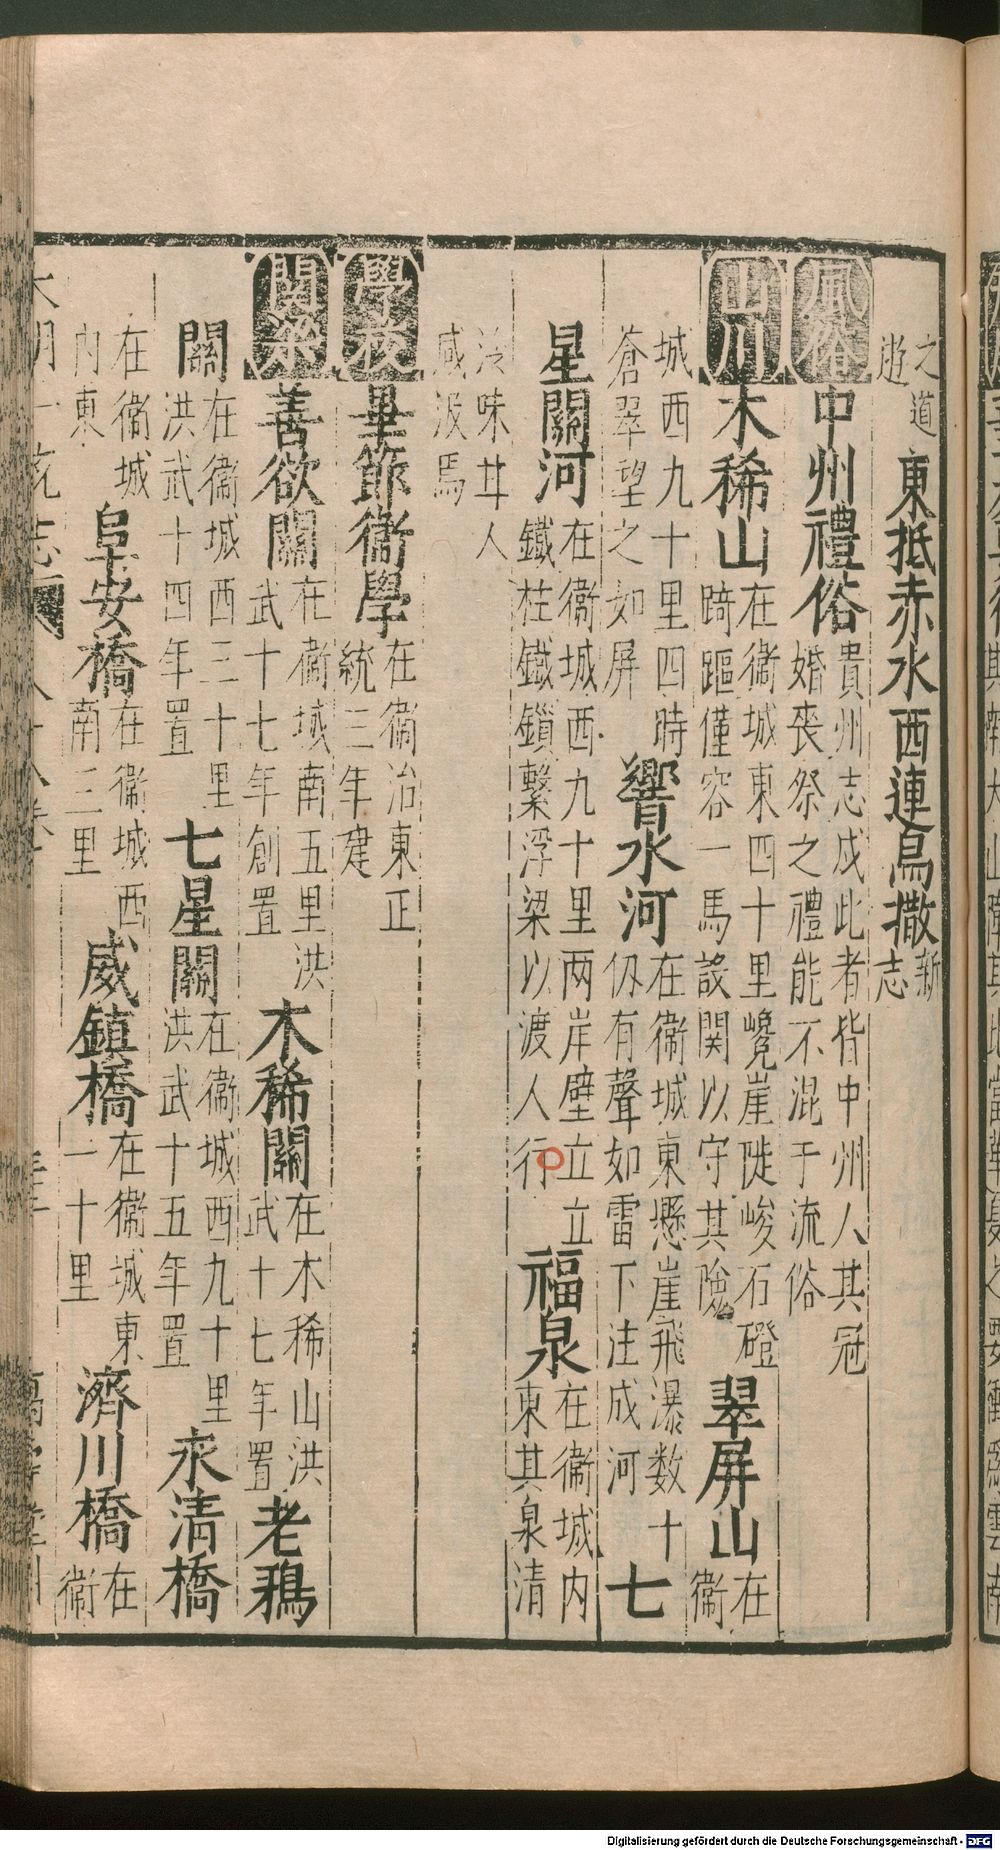 之道遊東抵赤水西連烏撒新志
風俗中州禮俗貴州志戍此者皆中州人其冠婚喪祭之禮能不混于流俗
山川木稀山在衞城東四十里巉崖陡峻石磴﨑嶇僅容一馬設関以守其險翠屏山在衞
城西九十里四時蒼翠望之如屏響水河在衞城東懸崖飛瀑数十仭有聲如雷下注成河七
星關河在衞城西九十里两岸壁立立鐵柱鐵鎖繫浮梁以渡人行福泉在衞城内東其泉清
味甘人咸汲焉
學校畢節衞學在衞治東正統三年建
関梁善欲關在衞城南五里洪武十七年創置木稀關在木稀山洪武十七年置老鴉
關在衞城西三十里洪武十四年置七星關在衞城西九十里洪武十五年置永清橋
在衞城内東阜安橋在衞城西南三里威鎮橋在衞城東一十里濟川橋在衞
大明一統志
Digitalisierung gefördert durch die Deutsche Forschungsgemeinschaft - DFG